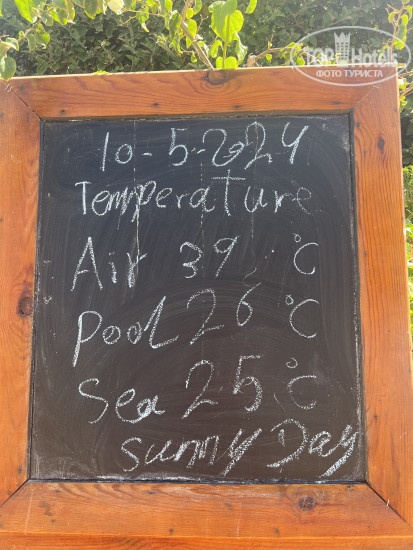 TOP Hotels
ФОТО ТУРИСТА
10-5-2024
Temperature
Air 39 °C
Pool 26 °C
Sea 25 °C
Sunny Day